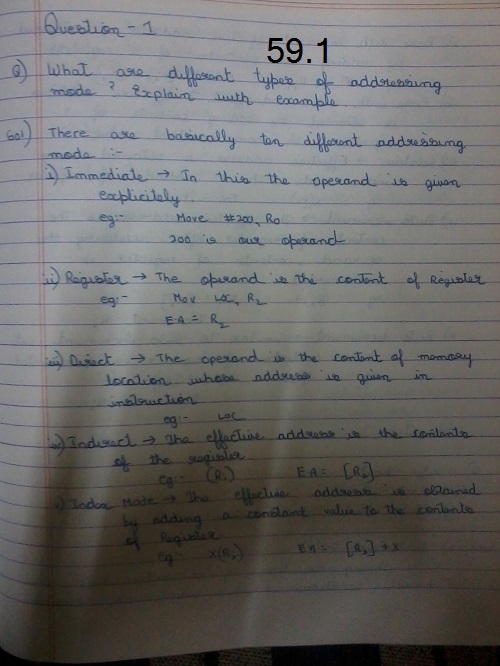 Question - 1
59.1
Q) What are different types of addressing
mode? Explain with example
Sol) There are basically ten different addressing
mode :-
i) Immediate → In this the operand is given
explicitely.
eg:- Move #200, R0
200 is our operand
ii) Register → The operand is the content of Register
eg:- Mov LOC, R2
E.A = R2
iii) Direct → The operand is the content of memory
location whose address is given in
instruction
eg:- LOC
iv) Indirect → The effective address is the contents
of the register
eg:- (R1) EA = [R1]
v) Index Mode → The effective address is obtained
by adding a constant value to the contents
of Register
eg:- X(R1) EA = [R1] + X